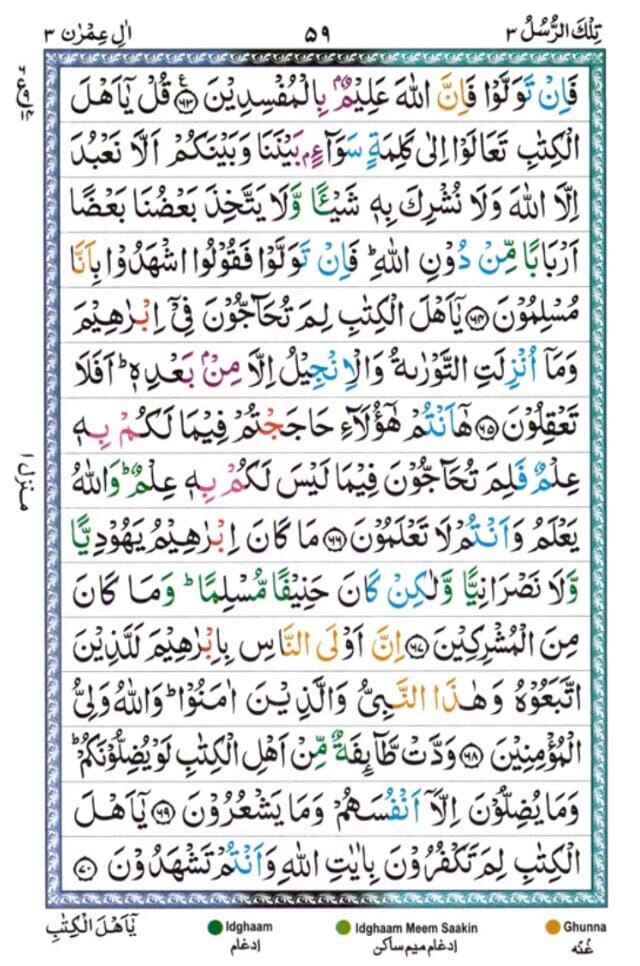 تِلْكَ الرُّسُلُ ٣
٥٩
اٰلِ عِمْرٰن ٣
فَاِنْ تَوَلَّوْا فَاِنَّ اللّٰهَ عَلِيْمٌۢ بِالْمُفْسِدِيْنَ ﴿٦٣﴾ قُلْ يٰۤاَهْلَ
الْكِتٰبِ تَعَالَوْا اِلٰى كَلِمَةٍ سَوَآءٍۢ بَيْنَنَا وَبَيْنَكُمْ اَلَّا نَعْبُدَ
اِلَّا اللّٰهَ وَلَا نُشْرِكَ بِهٖ شَيْـًٔا وَّلَا يَتَّخِذَ بَعْضُنَا بَعْضًا
اَرْبَابًا مِّنْ دُوْنِ اللّٰهِ ؕ فَاِنْ تَوَلَّوْا فَقُوْلُوا اشْهَدُوْا بِاَنَّا
مُسْلِمُوْنَ ﴿٦٤﴾ يٰۤاَهْلَ الْكِتٰبِ لِمَ تُحَآجُّوْنَ فِيْۤ اِبْرٰهِيْمَ
وَمَاۤ اُنْزِلَتِ التَّوْرٰىةُ وَالْاِنْجِيْلُ اِلَّا مِنْۢ بَعْدِهٖ ؕ اَفَلَا
تَعْقِلُوْنَ ﴿٦٥﴾ هٰۤاَنْتُمْ هٰٓؤُلَآءِ حَاجَجْتُمْ فِيْمَا لَكُمْ بِهٖ
عِلْمٌ فَلِمَ تُحَآجُّوْنَ فِيْمَا لَيْسَ لَكُمْ بِهٖ عِلْمٌ ؕ وَاللّٰهُ
يَعْلَمُ وَاَنْتُمْ لَا تَعْلَمُوْنَ ﴿٦٦﴾ مَا كَانَ اِبْرٰهِيْمُ يَهُوْدِيًّا
وَّلَا نَصْرَانِيًّا وَّلٰكِنْ كَانَ حَنِيْفًا مُّسْلِمًا ؕ وَمَا كَانَ
مِنَ الْمُشْرِكِيْنَ ﴿٦٧﴾ اِنَّ اَوْلَى النَّاسِ بِاِبْرٰهِيْمَ لَلَّذِيْنَ
اتَّبَعُوْهُ وَهٰذَا النَّبِيُّ وَالَّذِيْنَ اٰمَنُوْا ؕ وَاللّٰهُ وَلِيُّ
الْمُؤْمِنِيْنَ ﴿٦٨﴾ وَدَّتْ طَّآئِفَةٌ مِّنْ اَهْلِ الْكِتٰبِ لَوْ يُضِلُّوْنَكُمْ ؕ
وَمَا يُضِلُّوْنَ اِلَّاۤ اَنْفُسَهُمْ وَمَا يَشْعُرُوْنَ ﴿٦٩﴾ يٰۤاَهْلَ
الْكِتٰبِ لِمَ تَكْفُرُوْنَ بِاٰيٰتِ اللّٰهِ وَاَنْتُمْ تَشْهَدُوْنَ ﴿٧٠﴾
منزل ١
يٰۤاَهْلَ الْكِتٰبِ
Idghaam
ادغام
Idghaam Meem Saakin
ادغام میم ساکن
Ghunna
غُنّه